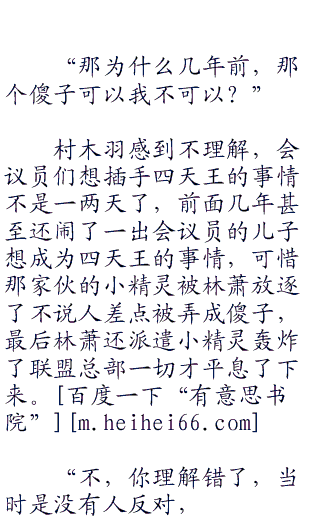 “那为什么几年前，那
个傻子可以我不可以？”
村木羽感到不理解，会
议员们想插手四天王的事情
不是一两天了，前面几年甚
至还闹了一出会议员的儿子
想成为四天王的事情，可惜
那家伙的小精灵被林萧放逐
了不说人差点被弄成傻子，
最后林萧还派遣小精灵轰炸
了联盟总部一切才平息了下
来。[百度一下“有意思书
院”][m.heihei66.com]
“不，你理解错了，当
时是没有人反对，